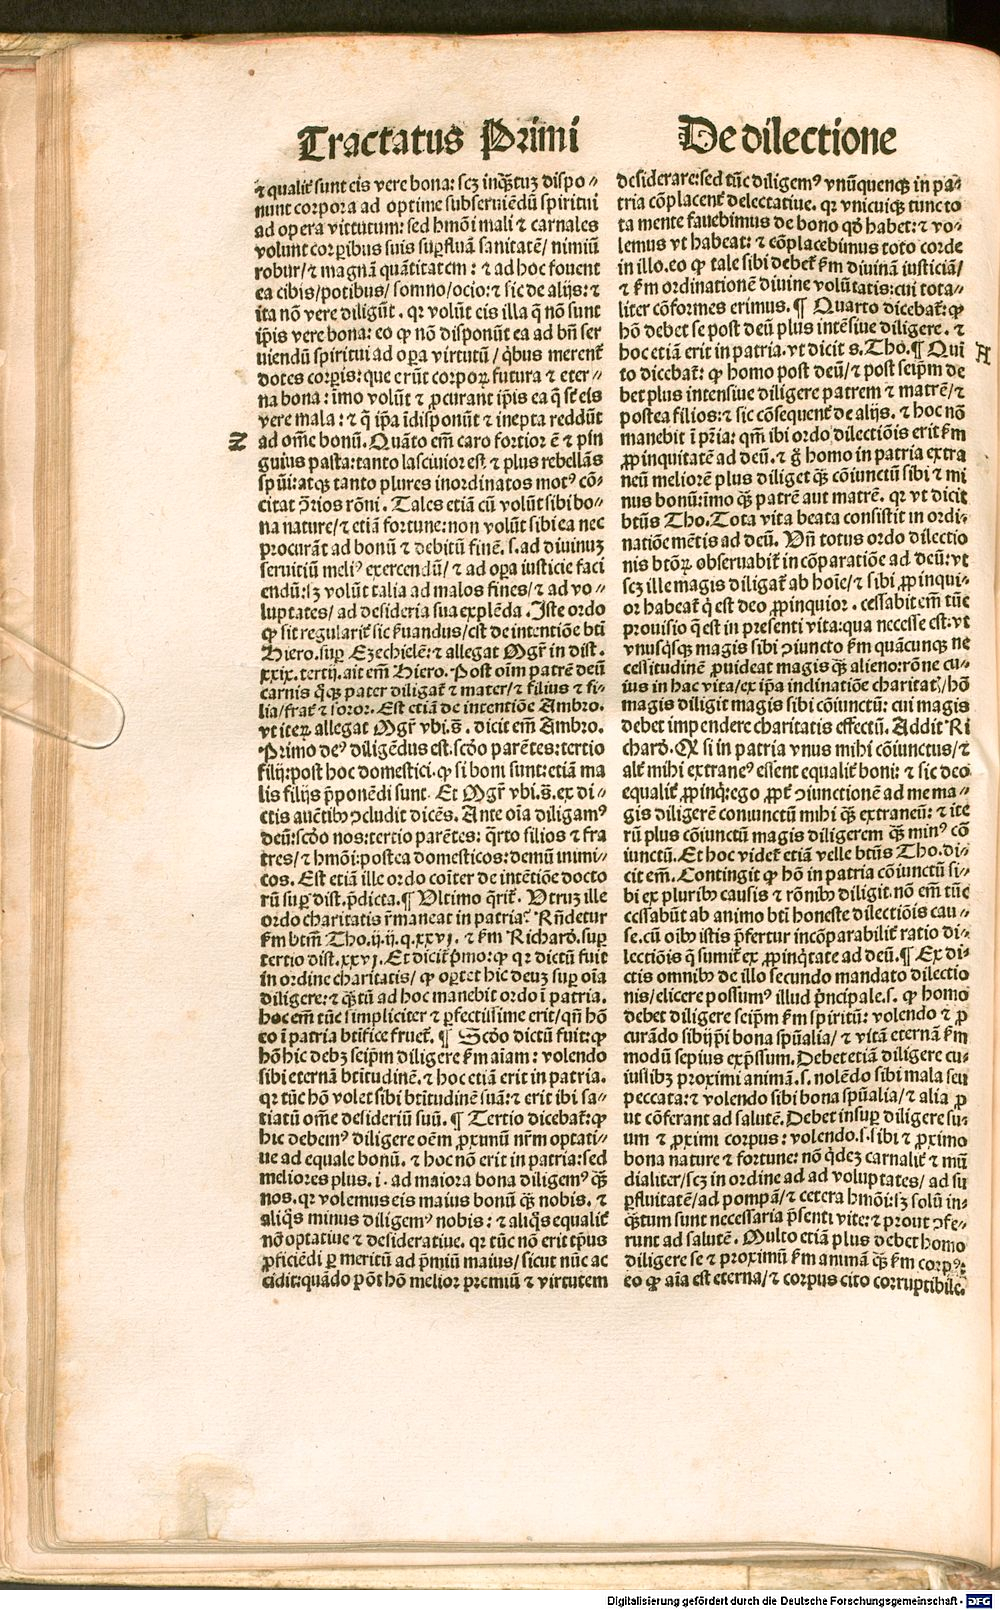 Tractatus Primi
⁊ qualit̃ sunt eis vere bona: scꝫ inqͣꝫtuꝫ dispo⸗
nunt corpora ad optime subseruiẽdũ spiritui
ad opera virtutum: sed hmõi mali ⁊ carnales
volunt corꝑibus suis suꝑfluã sanitatẽ/ nimiũ
robur/ ⁊ magnã quãtitatem: ⁊ ad hoc fouent
ea cibis/ potibus/ somno/ ocio: ⁊ sic de alijs: ⁊
ita nõ vere diligũt. qꝛ volũt eis illa q̃ nõ sunt
ip̃is vere bona: eo ꝙ nõ disponũt ea ad bñ ser
uiendũ spiritui ad oꝑa virtutũ/ q̇bus merent̃
dotes corꝑis: que erũt corpoꝝ futura ⁊ eter⸗
na bona: imo volũt ⁊ ꝓcurant ip̃is ea q̃ sũt eis
vere mala: ⁊ q̃ ip̃a ĩdisponũt ⁊ inepta reddũt
Z
ad om̃e bonũ. Quãto em̃ caro fortior ẽ ⁊ pin
guius pasta: tanto lasciuior est ⁊ plus rebellãs
sp̃ui: atqꝫ tanto plures inordinatos motꝰ cõ⸗
citat ꝯ̃rios rõni. Tales etiã cũ volũt sibi bo⸗
na nature/ ⁊ etiã fortune: non volũt sibi ea nec
procurãt ad bonũ ⁊ debitũ finẽ. s. ad diuinuꝫ
seruitiũ meliꝰ exercendũ/ ⁊ ad oꝑa iusticie faci
endũ: sꝫ volũt talia ad malos fines/ ⁊ ad vo⸗
luptates/ ad desideria sua explẽda. Iste ordo
ꝙ sit regularit̃ sic s̃uandus/ est de intentiõe bt̃i
Hiero. suꝑ Ezechielẽ: ⁊ allegat Mgr̃ in dist.
xxix. tertij. ait em̃ Hiero. Post oĩm patrẽ deũ
carnis q̊qꝫ pater diligat̃ ⁊ mater/ ⁊ filius ⁊ fi⸗
lia/ frat̃ ⁊ soror. Est etiã de intentiõe Ambro.
vt iteꝝ allegat Mgr̃ vbi. s̃. dicit em̃ Ambro.
Primo deꝰ diligẽdus est. scđo parẽtes: tertio
filij: post hoc domestici. ꝙ si boni sunt: etiã ma
lis filijs p̃ponẽdi sunt. Et Mgr̃ vbi. s̃. ex di⸗
ctis auẽtibꝰ ꝯcludit dicẽs. Ante oĩa diligamꝰ
deũ: scđo nos: tertio parẽtes: q̃rto filios ⁊ fra
tres/ ⁊ hmõi: postea domesticos: demũ inimi⸗
cos. Est etiã ille ordo coĩter de intẽtiõe docto
rũ suꝑ dist. p̃dicta. ¶ Vltimo q̃rit̃. Vtruꝫ ille
ordo charitatis r̃maneat in patria? Rñdetur
s̃m btm̃ Tho. ij. ij. q. xxvj. ⁊ s̃m Richard̃. suꝑ
tertio dist. xxvj. Et dicit̃ p̃mo: ꝙ qꝛ dictũ fuit
in ordine charitatis/ ꝙ oꝑtet hic deuꝫ suꝑ oĩa
diligere: ⁊ qͣꝫtũ ad hoc manebit ordo ĩ patria.
hoc em̃ tũc simpliciter ⁊ ꝑfectissime erit/ qñ hõ
eo ĩ patria bt̃ifice fruet̃. ¶ Scđo dictũ fuit: ꝙ
hõ hic debꝫ seip̃m diligere s̃m aĩam: volendo
sibi eternã bt̃itudinẽ. ⁊ hoc etiã erit in patria.
qꝛ tũc hõ volet sibi bt̃itudinẽ suã: ⁊ erit ibi sa⸗
tiatũ om̃e desideriũ suũ. ¶ Tertio dicebat̃: ꝙ
hic debemꝰ diligere oẽm ꝓximũ nr̃m optati⸗
ue ad equale bonũ. ⁊ hoc nõ erit in patria: sed
meliores plus. i. ad maiora bona diligemꝰ qͣꝫ
nos. qꝛ volemus eis maius bonũ qͣꝫ nobis. ⁊
aliq̃s minus diligemꝰ nobis: ⁊ aliq̃s equalit̃
nõ optatiue ⁊ desideratiue. qꝛ tũc nõ erit tp̃us
ꝓficiẽdi ꝑ meritũ ad p̃miũ maius/ sicut nũc ac
cidit: quãdo põt hõ melior premiũ ⁊ virtutem
De dilectione
desiderare: sed tũc diligemꝰ vnũquenqꝫ in pa⸗
tria cõplacent̃ delectatiue. qꝛ vnicuiqꝫ tunc to
ta mente fauebimus de bono qđ habet: ⁊ vo⸗
lemus vt habeat: ⁊ cõplacebimus toto corde
in illo. eo ꝙ tale sibi debet̃ s̃m diuinã iusticiã/
⁊ s̃m ordinationẽ diuine volũtatis: cui tota⸗
liter cõformes erimus. ¶ Quarto dicebat̃: ꝙ
hõ debet se post deũ plus intẽsiue diligere. ⁊
hoc etiã erit in patria. vt dicit s. Tho. ¶ Quĩ
A
to dicebat̃: ꝙ homo post deũ/ ⁊ post seip̃m de
bet plus intensiue diligere patrem ⁊ matrẽ/ ⁊
postea filios: ⁊ sic cõsequent̃ de alijs. ⁊ hoc nõ
manebit ĩ pr̃ia: qm̃ ibi ordo dilectiõis erit s̃m
ꝓpinquitatẽ ad deũ. ⁊ g̃ homo in patria extra
neũ meliorẽ plus diliget qͣꝫ cõiunctũ sibi ⁊ mi
nus bonũ: imo qͣꝫ patrẽ aut matrẽ. qꝛ vt dicit
bt̃us Tho. Tota vita beata consistit in ordi⸗
natiõe mẽtis ad deũ. Vñ totus ordo dilectio
nis bt̃oꝝ obseruabit̃ in cõparatiõe ad deũ: vt
scꝫ ille magis diligat̃ ab hoĩe/ ⁊ sibi ꝓpinqui⸗
or habeat̃ q̇ est deo ꝓpinquior. cessabit em̃ tũc
prouisio q̃ est in presenti vita: qua necesse est: vt
vnusq̇sqꝫ magis sibi ꝯiuncto s̃m quãcunqꝫ ne
cessitudinẽ ꝓuideat magis qͣꝫ alieno: rõne cu⸗
ius in hac vita/ ex ip̃a inclinatiõe charitat̃/ hõ
magis diligit magis sibi cõiunctũ: cui magis
debet impendere charitatis effectũ. Addit Ri
chard̃. Qꝛ si in patria vnus mihi cõiunctus/ ⁊
alt̃ mihi extraneꝰ essent equalit̃ boni: ⁊ sic deo
equalit̃ ꝓpinq̇: ego ꝓpt̃ ꝯiunctionẽ ad me ma⸗
gis diligerẽ coniunctũ mihi qͣꝫ extraneũ: ⁊ ite
rũ plus cõiunctũ magis diligerem qͣꝫ minꝰ cõ
iunctũ. Et hoc videt̃ etiã velle bt̃us Tho. di⸗
cit em̃. Contingit ꝙ hõ in patria cõiunctũ si⸗
bi ex pluribꝰ causis ⁊ rõnibꝰ diligit. nõ em̃ tũc
cessabũt ab animo bt̃i honeste dilectiõis cau⸗
se. cũ oĩbꝰ istis p̃fertur incõparabilit̃ ratio di⸗
lectiõis q̃ sumit̃ ex ꝓpinq̇tate ad deũ. ¶ Ex di⸗
ctis omnibꝰ de illo secundo mandato dilectio
nis/ elicere possumꝰ illud p̃ncipale. s. ꝙ homo
debet diligere seip̃m s̃m spiritũ: volendo ⁊ ꝓ
curãdo sibijp̃i bona sp̃ualia/ ⁊ vitã eternã s̃m
modũ sepius exp̃ssum. Debet etiã diligere cu⸗
iuslibꝫ proximi animã. s. nolẽdo sibi mala seu
peccata: ⁊ volendo sibi bona sp̃ualia/ ⁊ alia ꝓ
ut cõferant ad salutẽ. Debet insuꝑ diligere su⸗
um ⁊ ꝓximi corpus: volendo. s. sibi ⁊ ꝓximo
bona nature ⁊ fortune: nõ q̇deꝫ carnalit̃ ⁊ mũ
dialiter/ scꝫ in ordine ad ad voluptates/ ad su
ꝑfluitatẽ/ ad pompã/ ⁊ cetera hmõi: sꝫ solũ in⸗
qͣꝫtum sunt necessaria p̃senti vite: ⁊ prout ꝯfe⸗
runt ad salutẽ. Multo etiã plus debet homo
diligere se ⁊ proximũ s̃m animã qͣꝫ s̃m corpꝰ:
eo ꝙ aĩa est eterna/ ⁊ corpus cito corruptibile.
Digitalisierung gefördert durch die Deutsche Forschungsgemeinschaft - DFG